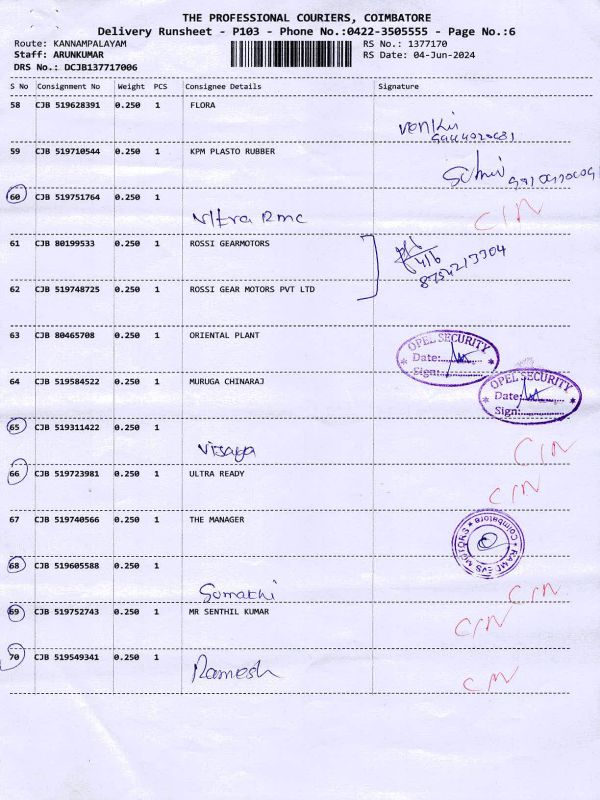 THE PROFESSIONAL COURIERS, COIMBATORE
Delivery Runsheet - P103 - Phone No.:0422-3505555 - Page No.:6
Route: KANNAMPALAYAM RS No.: 1377170
Staff: ARUNKUMAR RS Date: 04-Jun-2024
DRS No.: DCJB137717006
S No Consignment No Weight PCS Consignee Details Signature
58 CJB 519628391 0.250 1 FLORA
59 CJB 519710544 0.250 1 KPM PLASTO RUBBER
60 CJB 519751764 0.250 1
Ultra Rmc C/N
61 CJB 80199533 0.250 1 ROSSI GEARMOTORS
4/6
8754213304
62 CJB 519748725 0.250 1 ROSSI GEAR MOTORS PVT LTD
63 CJB 80465708 0.250 1 ORIENTAL PLANT
OPEL SECURITY
Date:
Sign:
64 CJB 519584522 0.250 1 MURUGA CHINARAJ
OPEL SECURITY
Date:
Sign:
65 CJB 519311422 0.250 1
Visaga C/N
66 CJB 519723981 0.250 1 ULTRA READY
C/N
67 CJB 519740566 0.250 1 THE MANAGER
Coimbatore
MOTORS
68 CJB 519605588 0.250 1
Sumathi C/N
69 CJB 519752743 0.250 1 MR SENTHIL KUMAR
C/N
70 CJB 519549341 0.250 1
Ramesh C/N